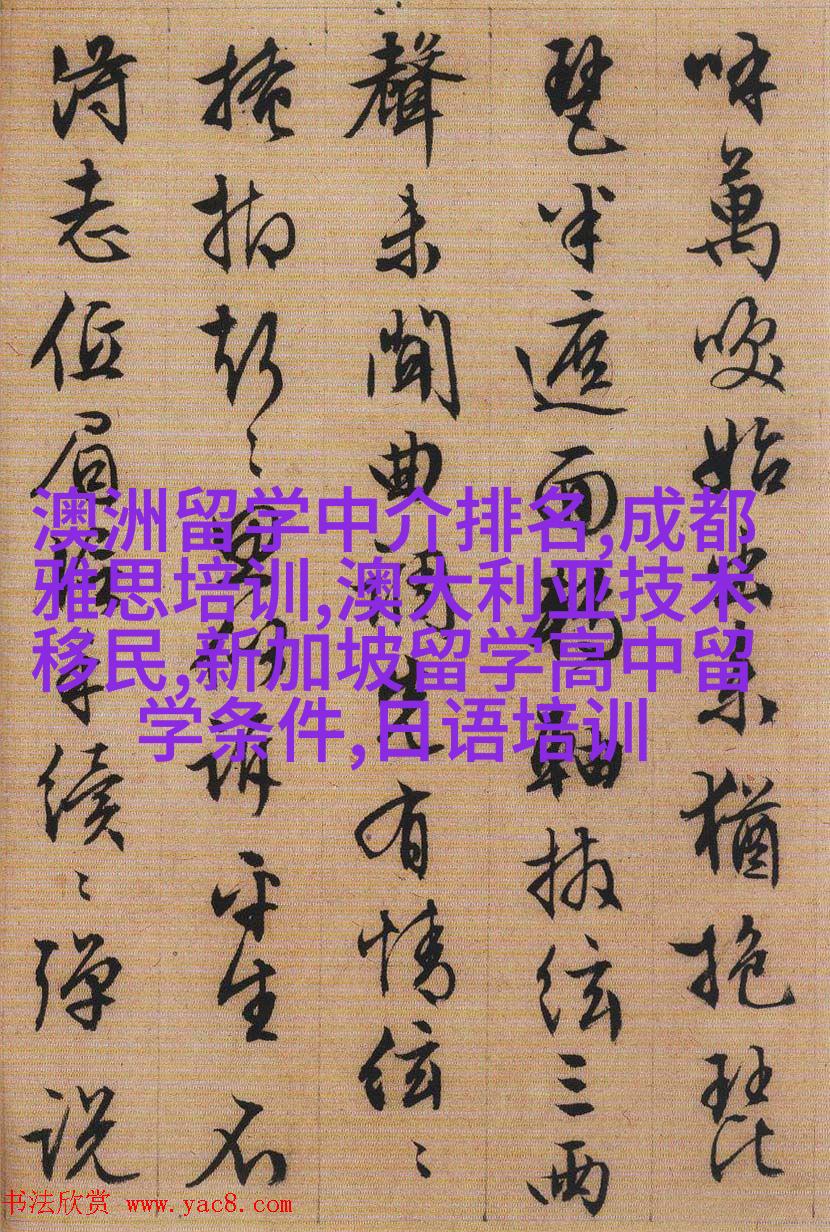 呼萬喚始出來猶抱琵
琶半遮面轉軸撥絃三兩
聲未聞曲調先有情絃〻
掩抑聲〻思似訴平生不
得志低眉信手續〻彈說
澳洲留学中介排名,成都
雅思培训,澳大利亚技术
移民,新加坡留学高中留
学条件,日语培训
书法欣赏 www.yac8.com